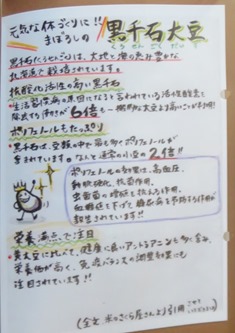 元気な体づくりに!!
まぼろしの 黒千石大豆
くろ せん ごく だい ず
黒千石(くろせんごく)は、大地と海の恵み豊かな
北海道で栽培されています。
抗酸化活性の高い黒千石
生活習慣病の原因になると言われている活性酸素を
除去する働きが 6倍も
ポリフェノールもたっぷり
黒千石は、豆類の中で最も多くポリフェノールが
含まれています。なんと通常の小豆の 2倍!!
ポリフェノールの効果は、高血圧、
動脈硬化、抗菌作用、
虫歯菌の増殖を抑える作用、
血糖値を下げて糖尿病を予防する作用が
報告されています!!
栄養満点で注目
黄大豆に比べて、健康に良いアントシアニンも多く含み、
栄養価が高く、免疫バランスの調整効果にも
注目されています!!
(全文 米のさくら屋さんより引用させて
いただきました)